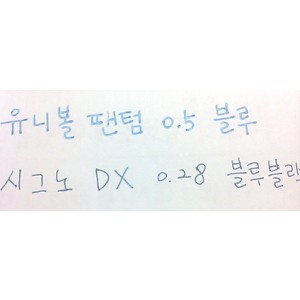 유니볼 팬텀 0.5 블루
시그노 DX 0.28 블루블랙